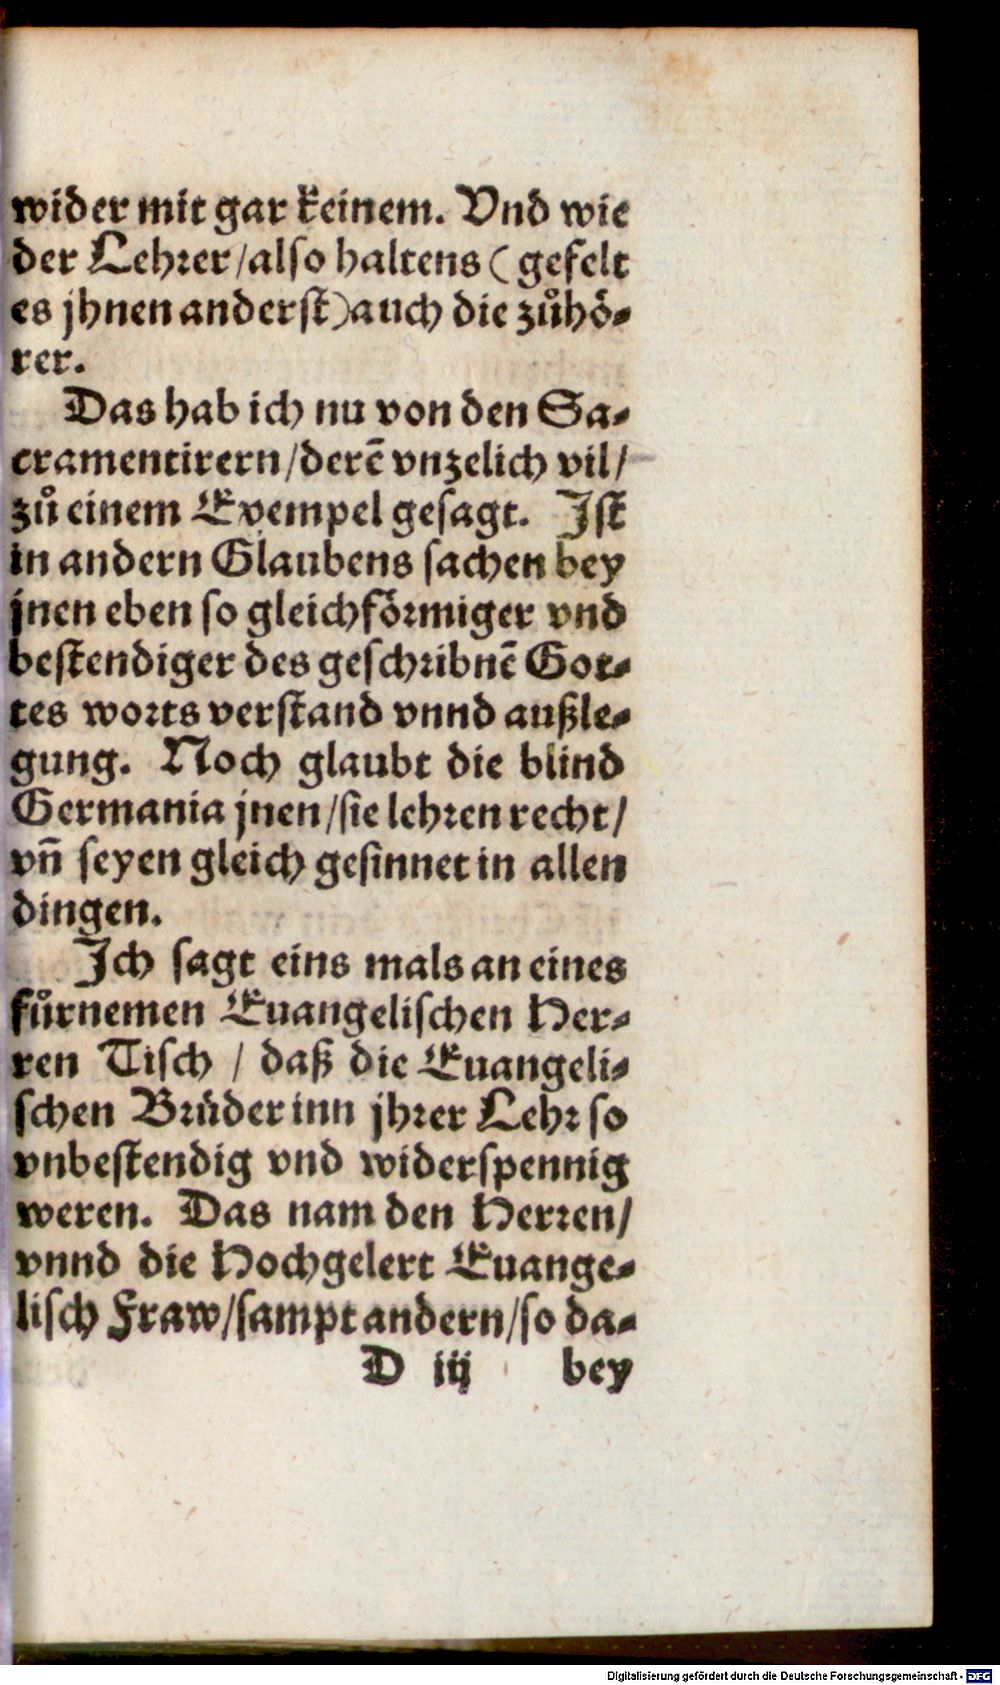 wider mit gar keinem. Vnd wie
der Lehrer/also haltens (gefelt
es jhnen anderst) auch die zůhö-
rer.
Das hab ich nu von den Sa-
cramentirern/derẽ vnzelich vil/
zů einem Exempel gesagt. Ist
in andern Glaubens sachen bey
jnen eben so gleichförmiger vnd
bestendiger des geschribnẽ Got-
tes worts verstand vnnd außle-
gung. Noch glaubt die blind
Germania jnen/sie lehren recht/
vñ seyen gleich gesinnet in allen
dingen.
Ich sagt eins mals an eines
fůrnemen Euangelischen Her-
ren Tisch / daß die Euangeli-
schen Brüder inn jhrer Lehr so
vnbestendig vnd widerspennig
weren. Das nam den Herren/
vnnd die Hochgelert Euange-
lisch Fraw/sampt andern/so da-
D iij bey
Digitalisierung gefördert durch die Deutsche Forschungsgemeinschaft - DFG